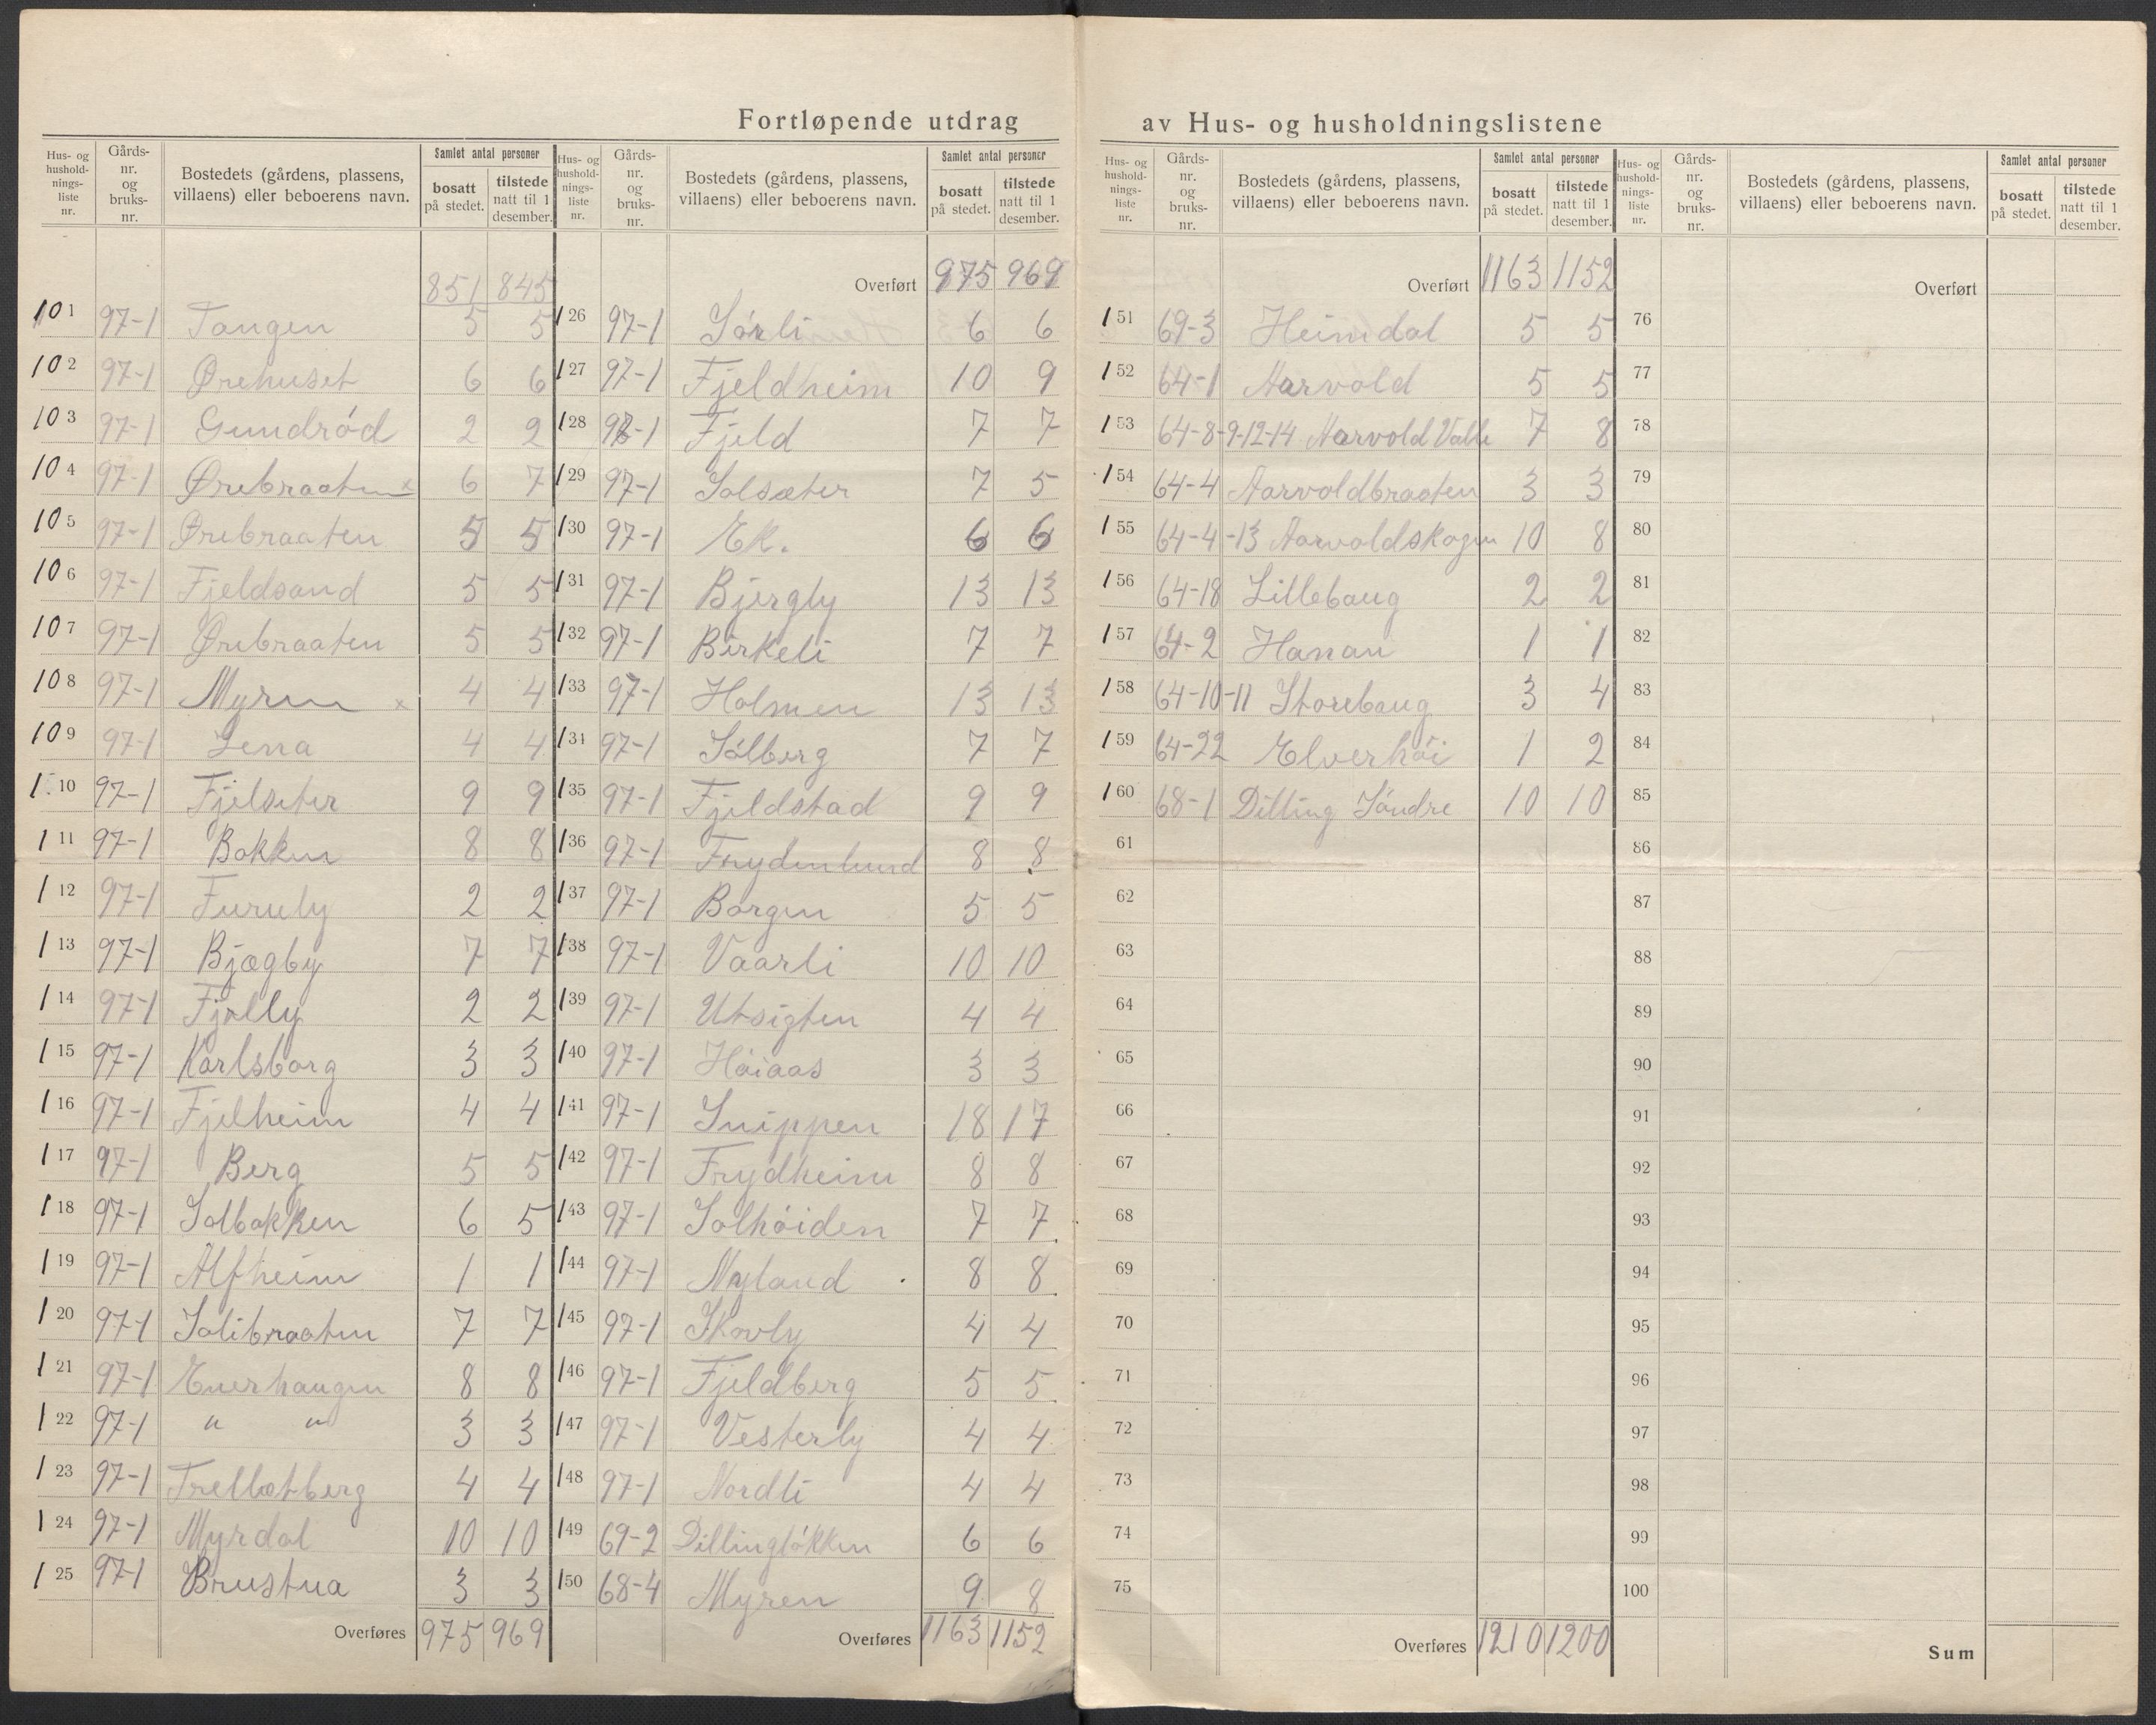 Fortløpende utdrag av Hus- og husholdningslistene
Hus- og hushold-nings-liste nr. | Gårds-nr. og bruks-nr. | Bostedets (gårdens, plassens, villaens) eller beboerens navn. | Samlet antal personer | bosatt på stedet. | tilstede natt til 1 desember.
851 845
101 97-1 Tangen 5 5
102 97-1 Ørehuset 6 6
103 97-1 Gundrød 2 2
104 97-1 Ørebraaten x 6 7
105 97-1 Ørebraaten 5 5
106 97-1 Fjeldsand 5 5
107 97-1 Ørebraaten 5 5
108 97-1 Myren x 4 4
109 97-1 Lena 4 4
110 97-1 Fjelseter 9 9
111 97-1 Bakken 8 8
112 97-1 Furuly 2 2
113 97-1 Bjøgby 7 7
114 97-1 Fjelly 2 2
115 97-1 Karlsborg 3 3
116 97-1 Fjelheim 4 4
117 97-1 Berg 5 5
118 97-1 Solbakken 6 5
119 97-1 Alfheim 1 1
120 97-1 Solibraaten 7 7
121 97-1 Enerhaugen 8 8
122 97-1 " " 3 3
123 97-1 4 4
124 97-1 Myrdal 10 10
125 97-1 Brustua 3 3
Overføres 975 969
Hus- og hushold-nings-liste nr. | Gårds-nr. og bruks-nr. | Bostedets (gårdens, plassens, villaens) eller beboerens navn. | Samlet antal personer | bosatt på stedet. | tilstede natt til 1 desember.
Overført 975 969
126 97-1 Sørli 6 6
127 97-1 Fjeldheim 10 9
128 97-1 Fjeld 7 7
129 97-1 Solsæter 7 5
130 97-1 Ek. 6 6
131 97-1 Bjergly 13 13
132 97-1 Birkeli 7 7
133 97-1 Holmen 13 13
134 97-1 Solberg 7 7
135 97-1 Fjeldstad 9 9
136 97-1 Frydenlund 8 8
137 97-1 Borgen 5 5
138 97-1 Vaarli 10 10
139 97-1 Utsigten 4 4
140 97-1 Høiaas 3 3
141 97-1 Snippen 18 17
142 97-1 Frydheim 8 8
143 97-1 Solhøiden 7 7
144 97-1 Nyland 8 8
145 97-1 Skovly 4 4
146 97-1 Fjeldberg 5 5
147 97-1 Vesterly 4 4
148 97-1 Nordli 4 4
149 69-2 Dillingløkken 6 6
150 68-4 Myren 9 8
Overføres 1163 1152
Hus- og hushold-nings-liste nr. | Gårds-nr. og bruks-nr. | Bostedets (gårdens, plassens, villaens) eller beboerens navn. | Samlet antal personer | bosatt på stedet. | tilstede natt til 1 desember.
Overført 1163 1152
151 69-3 Heimdal 5 5
152 64-1 Aarvold 5 5
153 64-8-9-12-14 Aarvold Valle 7 8
154 64-4 Aarvoldbraaten 3 3
155 64-4-13 Aarvoldskogen 10 8
156 64-18 Lillehaug 2 2
157 64-2 Hanan 1 1
158 64-10-11 Storehaug 3 4
159 64-22 Elverhøi 1 2
160 68-1 Dilling Søndre 10 10
61
62
63
64
65
66
67
68
69
70
71
72
73
74
75
Overføres 1210 1200
Hus- og hushold-nings-liste nr. | Gårds-nr. og bruks-nr. | Bostedets (gårdens, plassens, villaens) eller beboerens navn. | Samlet antal personer | bosatt på stedet. | tilstede natt til 1 desember.
Overført
76
77
78
79
80
81
82
83
84
85
86
87
88
89
90
91
92
93
94
95
96
97
98
99
100
Sum